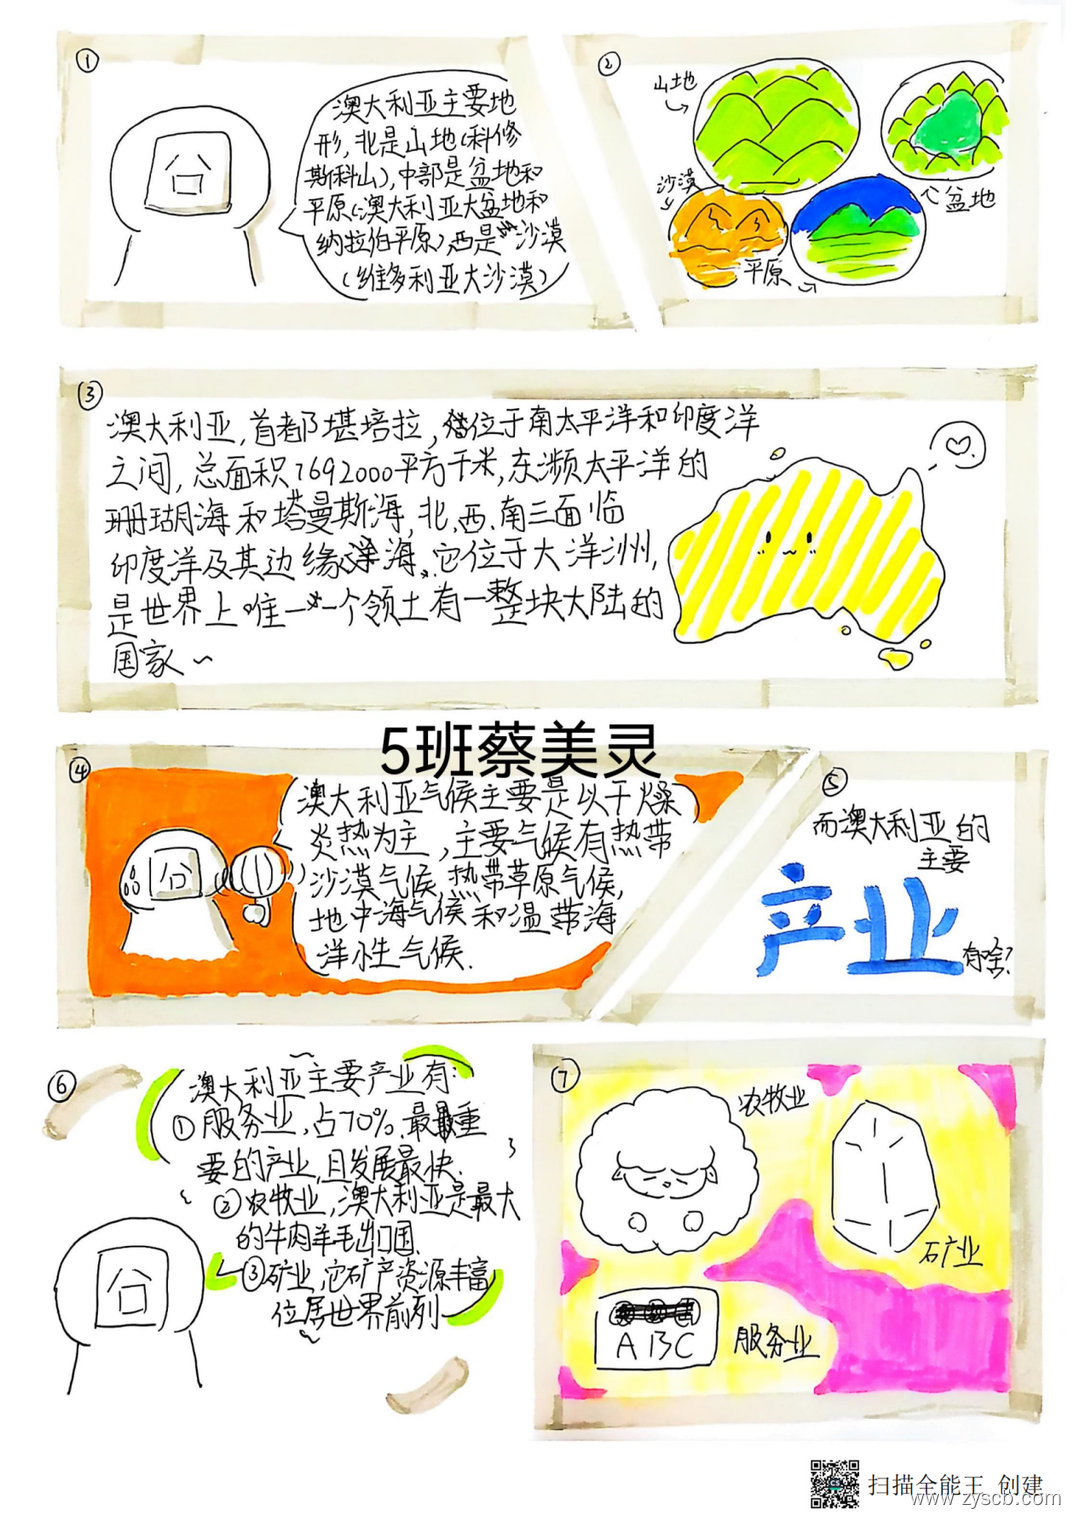 ①
澳大利亚主要地
形,北是山地(科修
斯科山),中部是盆地和
平原(澳大利亚大盆地和
纳拉伯平原),西是沙漠
(维多利亚大沙漠)
②
山地
盆地
沙漠
平原
③
澳大利亚,首都堪培拉,位于南太平洋和印度洋
之间,总面积7692000平方千米,东濒太平洋的
珊瑚海和塔曼斯海,北、西、南三面临
印度洋及其边缘海.它位于大洋洲,
是世界上唯一一个领土有一整块大陆的
国家~
5班蔡美灵
④
澳大利亚气候主要是以干燥
炎热为主,主要气候有热带
沙漠气候,热带草原气候,
地中海气候和温带海
洋性气候.
⑤
而澳大利亚的
主要
产业有啥?
⑥
澳大利亚主要产业有:
①服务业,占70%.最重
要的产业,且发展最快.
②农牧业,澳大利亚是最大
的牛肉羊毛出口国.
③矿业,它矿产资源丰富
位居世界前列
⑦
农牧业
石矿业
ABC
服务业
扫描全能王 创建
www.zyscb.com